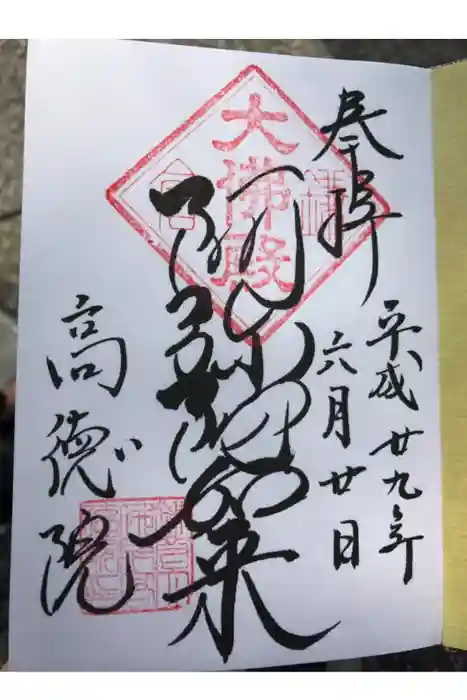 奉拝
平成廿九年
六月廿日
大佛殿
阿弥陀如来
高徳院